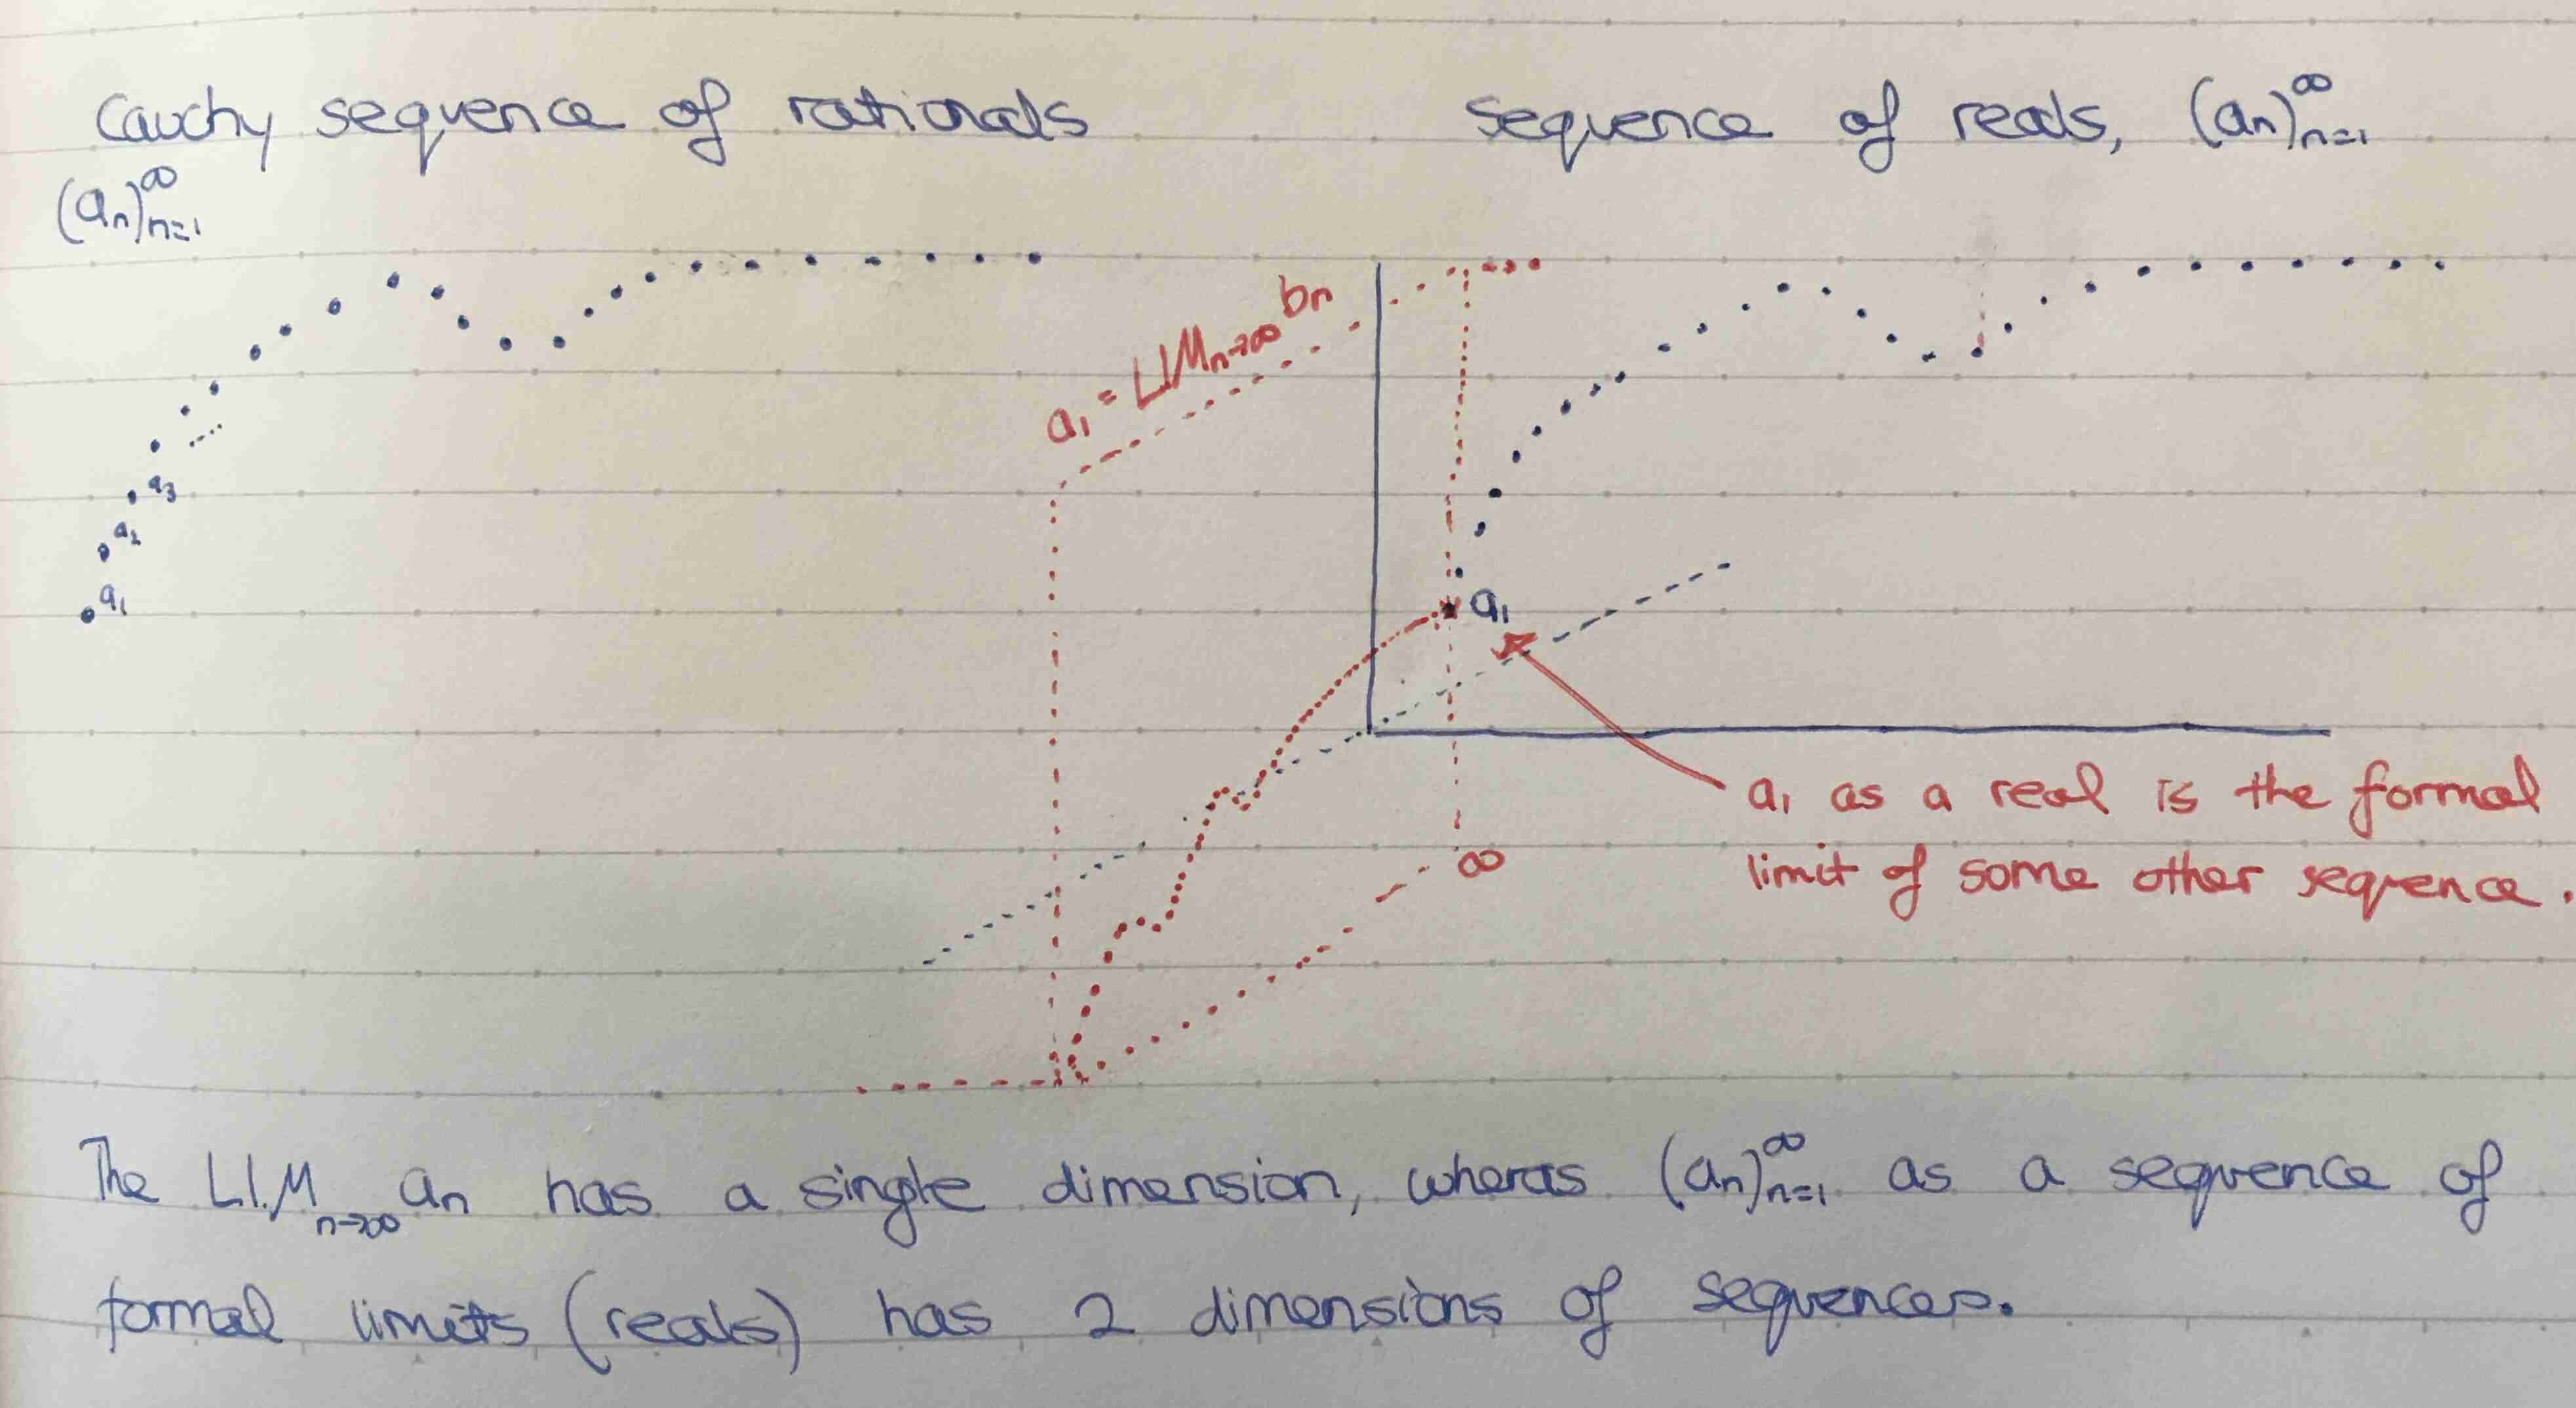 Cauchy sequence of rationals
(aₙ)ₙ₌₁^∞
sequence of reals, (aₙ)ₙ₌₁^∞
a₃
a₂
a₁
a₁ = LIMₙ→∞ bₙ
a₁
∞
a₁ as a real is the formal
limit of some other sequence.
The LIMₙ→∞ aₙ has a single dimension, wheras (aₙ)ₙ₌₁^∞ as a sequence of
formal limits (reals) has 2 dimensions of sequences.